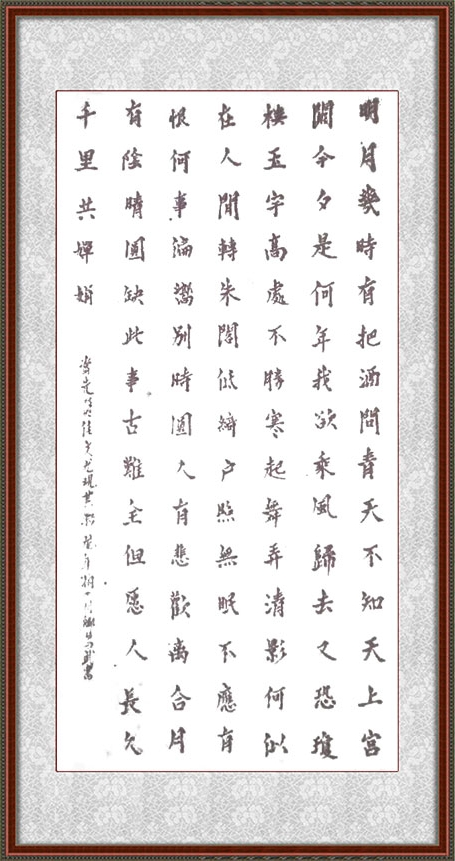 明月幾時有把酒問青天不知天上宮
闕今夕是何年我欲乘風歸去又恐瓊
樓玉宇高處不勝寒起舞弄清影何似
在人間轉朱閣低綺户照無眠不應有
恨何事偏嚮別時圓人有悲歡離合月
有陰晴圓缺此事古難全但愿人長久
千里共嬋娟